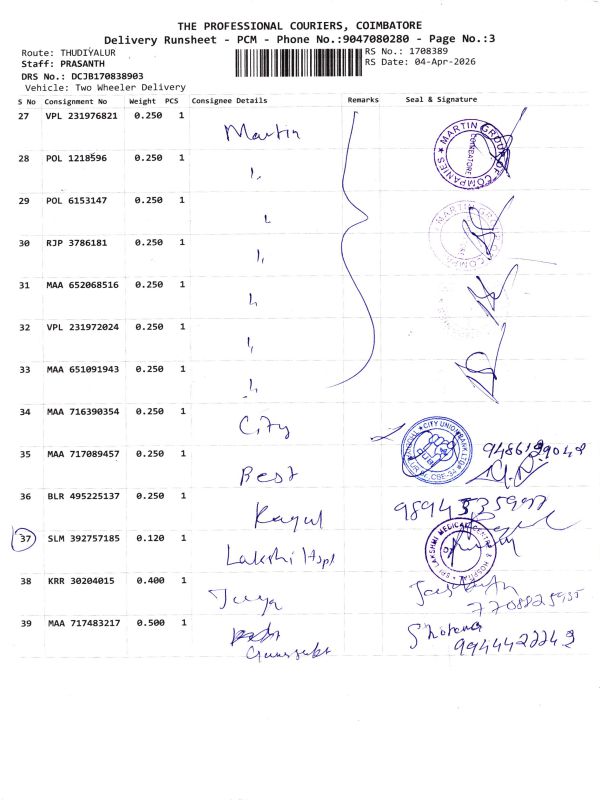 THE PROFESSIONAL COURIERS, COIMBATORE
Delivery Runsheet - PCM - Phone No.:9047080280 - Page No.:3
Route: THUDIYALUR
RS No.: 1708389
Staff: PRASANTH
RS Date: 04-Apr-2026
DRS No.: DCJB170838903
Vehicle: Two Wheeler Delivery
S No Consignment No Weight PCS Consignee Details Remarks Seal & Signature
27 VPL 231976821 0.250 1 Martin
MARTIN GROUP OF COMPANIES COIMBATORE
28 POL 1218596 0.250 1 "
29 POL 6153147 0.250 1 "
MARTIN GROUP OF COMPA
30 RJP 3786181 0.250 1 "
31 MAA 652068516 0.250 1 "
32 VPL 231972024 0.250 1 "
33 MAA 651091943 0.250 1 "
34 MAA 716390354 0.250 1 City
CITY UNION BANK LTD
35 MAA 717089457 0.250 1 Best
36 BLR 495225137 0.250 1
37 SLM 392757185 0.120 1 Lakshi Hspl
SRI LAKSHMI MEDICAL CENTRE & HOSPITAL
38 KRR 30204015 0.400 1
39 MAA 717483217 0.500 1
9944422243